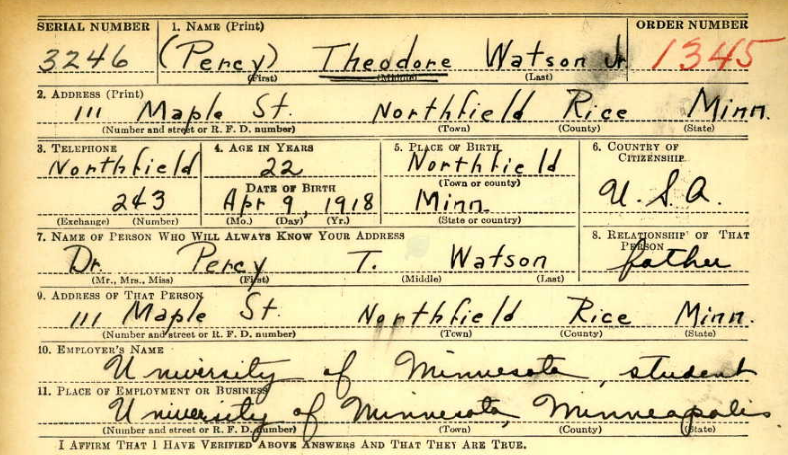 SERIAL NUMBER 1. NAME (Print) ORDER NUMBER
3246 (Percy) Theodore Watson Jr 1345
(First) (Middle) (Last)
2. ADDRESS (Print)
111 Maple St. Northfield Rice Minn.
(Number and street or R. F. D. number) (Town) (County) (State)
3. TELEPHONE 4. AGE IN YEARS 5. PLACE OF BIRTH 6. COUNTRY OF CITIZENSHIP
Northfield 22 Northfield
DATE OF BIRTH (Town or county)
243 Apr 9, 1918 Minn. U. S. A.
(Exchange) (Number) (Mo.) (Day) (Yr.) (State or country)
7. NAME OF PERSON WHO WILL ALWAYS KNOW YOUR ADDRESS 8. RELATIONSHIP OF THAT PERSON
Dr. Percy T. Watson father
(Mr., Mrs., Miss) (First) (Middle) (Last)
9. ADDRESS OF THAT PERSON
111 Maple St. Northfield Rice Minn.
(Number and street or R. F. D. number) (Town) (County) (State)
10. EMPLOYER'S NAME
University of Minnesota, student
11. PLACE OF EMPLOYMENT OR BUSINESS
University of Minnesota, Minneapolis.
(Number and street or R. F. D. number) (Town) (County) (State)
I AFFIRM THAT I HAVE VERIFIED ABOVE ANSWERS AND THAT THEY ARE TRUE.